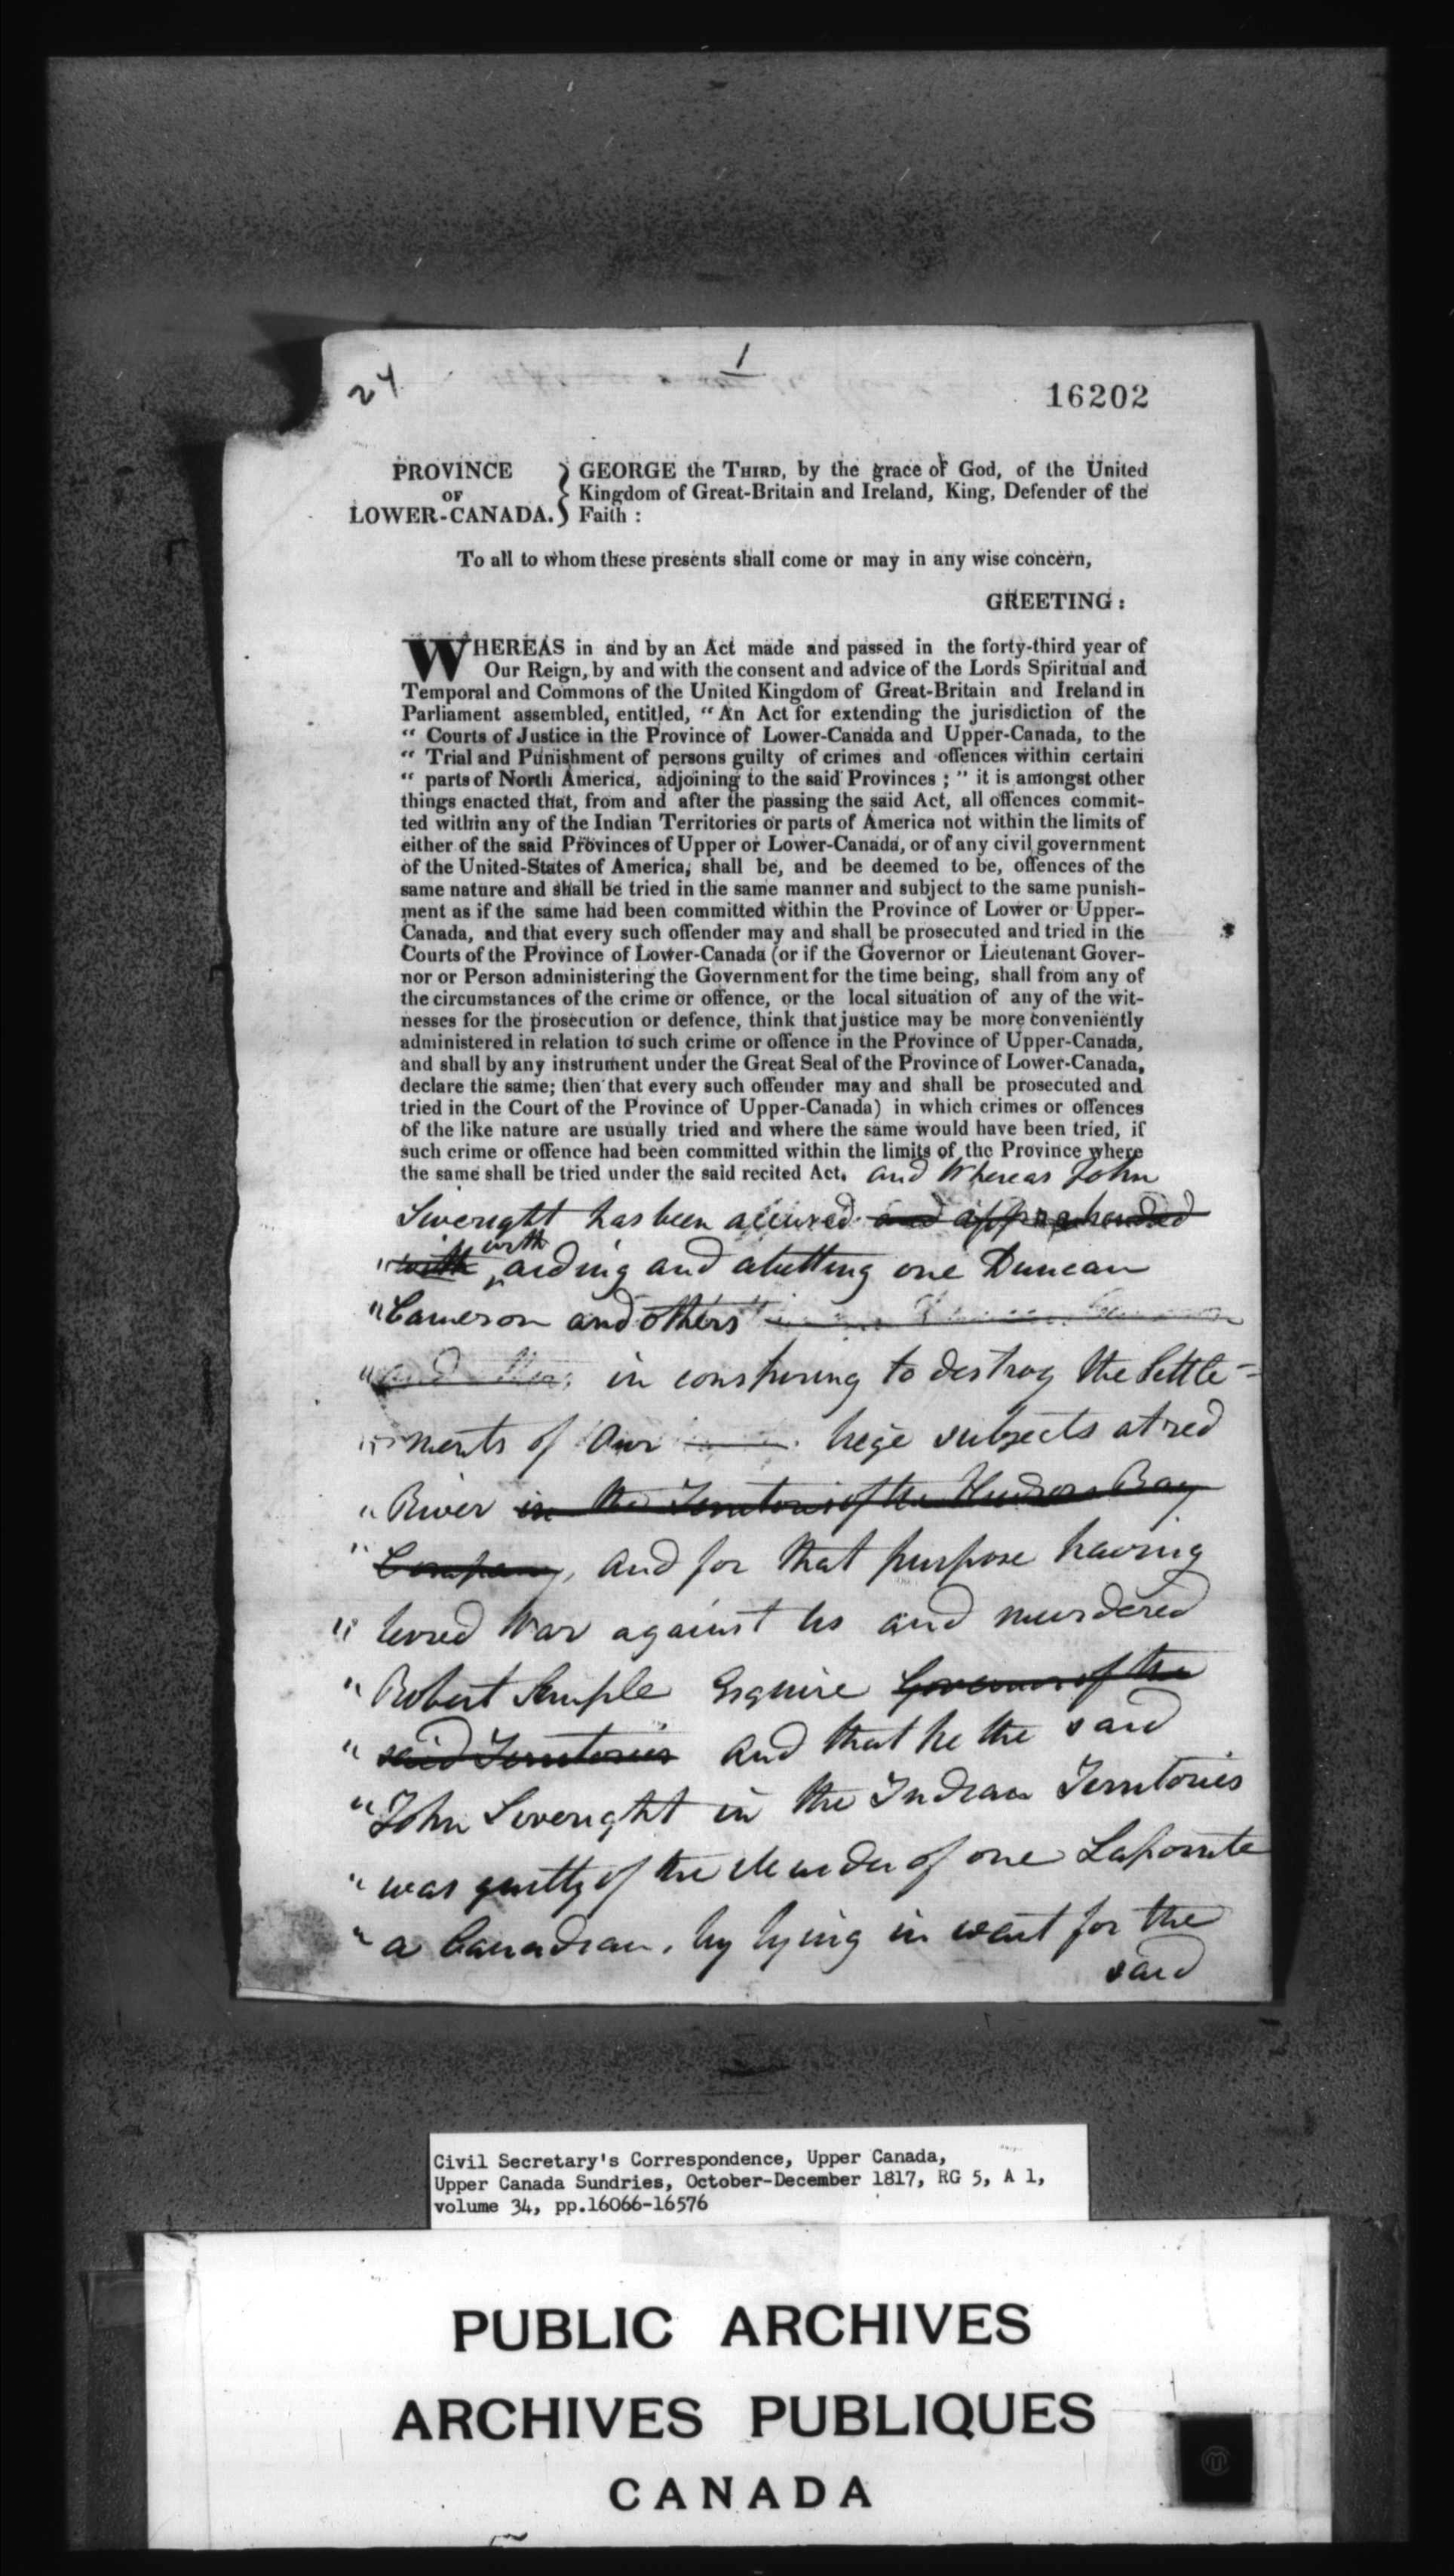 24
1
16202
PROVINCE
OF
LOWER-CANADA.
GEORGE the THIRD, by the grace of God, of the United
Kingdom of Great-Britain and Ireland, King, Defender of the
Faith :
To all to whom these presents shall come or may in any wise concern,
GREETING :
WHEREAS in and by an Act made and passed in the forty-third year of
Our Reign, by and with the consent and advice of the Lords Spiritual and
Temporal and Commons of the United Kingdom of Great-Britain and Ireland in
Parliament assembled, entitled, “ An Act for extending the jurisdiction of the
“ Courts of Justice in the Province of Lower-Canada and Upper-Canada, to the
“ Trial and Punishment of persons guilty of crimes and offences within certain
“ parts of North America, adjoining to the said Provinces ; ” it is amongst other
things enacted that, from and after the passing the said Act, all offences commit-
ted within any of the Indian Territories or parts of America not within the limits of
either of the said Provinces of Upper or Lower-Canada, or of any civil government
of the United-States of America, shall be, and be deemed to be, offences of the
same nature and shall be tried in the same manner and subject to the same punish-
ment as if the same had been committed within the Province of Lower or Upper-
Canada, and that every such offender may and shall be prosecuted and tried in the
Courts of the Province of Lower-Canada (or if the Governor or Lieutenant Gover-
nor or Person administering the Government for the time being, shall from any of
the circumstances of the crime or offence, or the local situation of any of the wit-
nesses for the prosecution or defence, think that justice may be more conveniently
administered in relation to such crime or offence in the Province of Upper-Canada,
and shall by any instrument under the Great Seal of the Province of Lower-Canada,
declare the same; then that every such offender may and shall be prosecuted and
tried in the Court of the Province of Upper-Canada) in which crimes or offences
of the like nature are usually tried and where the same would have been tried, if
such crime or offence had been committed within the limits of the Province where
the same shall be tried under the said recited Act. and Whereas John
Siveright has been accused and apprehended
" with with aiding and abetting one Duncan
" Cameron and others
" and others in conspiring to destroy the Settle-
" ments of Our liege subjects at red
" River in the Territories of the Hudson Bay
" Company, and for that purpose having
" levied War against Us and murdered
" Robert Semple Esquire Governor of the
" said Territories and that he the said
" John Siveright in the Indian Territories
" was guilty of the Murder of one Lapointe
" a Canadian, by lying in wait for the
said
Civil Secretary's Correspondence, Upper Canada,
Upper Canada Sundries, October-December 1817, RG 5, A 1,
volume 34, pp.16066-16576
PUBLIC ARCHIVES
ARCHIVES PUBLIQUES
CANADA